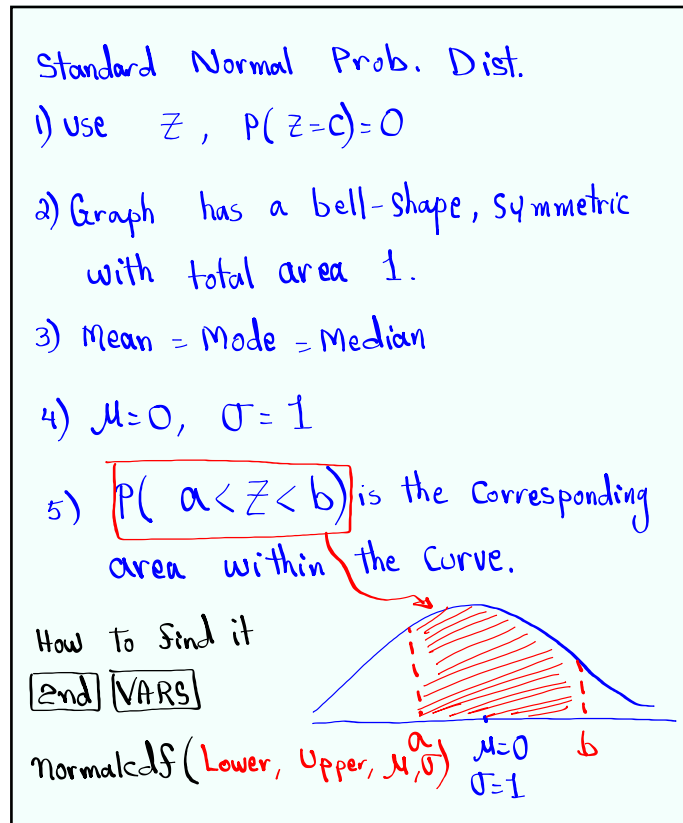 Standard Normal Prob. Dist.
1) Use Z, P(Z=C)=0
2) Graph has a bell-shape, Symmetric
with total area 1.
3) Mean = Mode = Median
4) μ=0, σ=1
5) P( a<Z<b) is the Corresponding
area within the Curve.
How to find it
2nd VARS
normalcdf(Lower, Upper, μ,σ)
a μ=0 b
σ=1